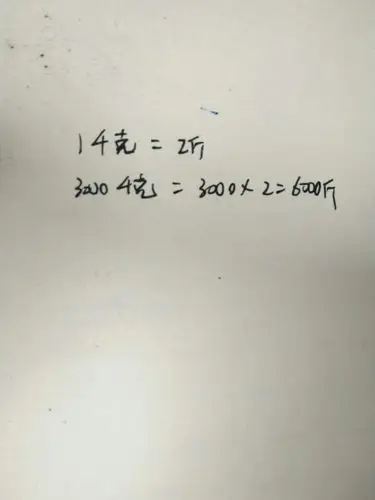 1千克=2斤
3000千克=3000×2=6000斤